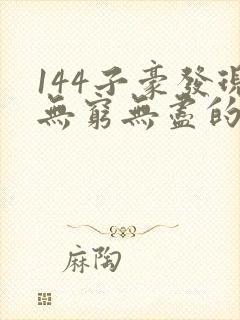 144子豪發現
無窮無盡的
麻陶